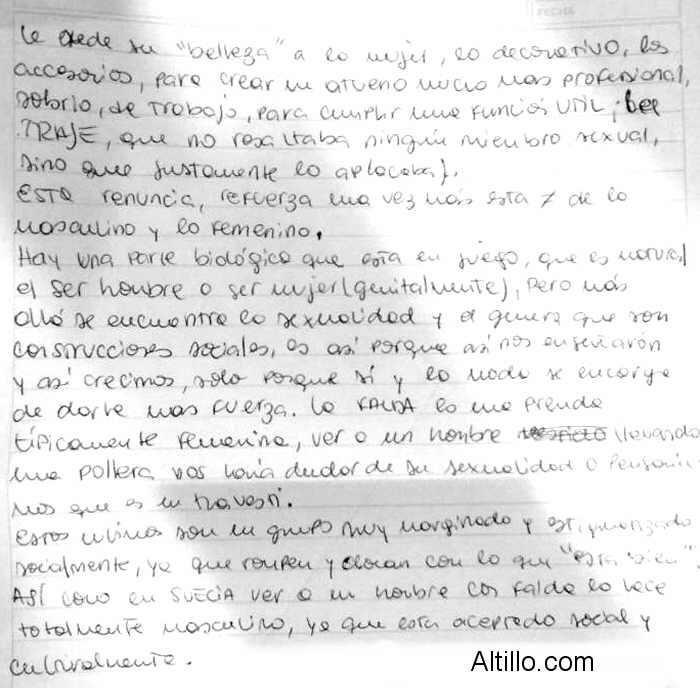 FECHA
le cede su "belleza" a la mujer, lo decorativo, los
accesorios, para crear un atuendo mucho mas profesional,
sobrio, de trabajo, para cumplir una función UTIL,
TRAJE, que no resaltaba ningún miembro sexual,
sino que justamente lo aplacaba).
Esta renuncia, refuerza una vez más esta ≠ de lo
masculino y lo femenino.
Hay una parte biológica que esta en juego, que es natural
el ser hombre o ser mujer (genitalmente), pero más
allá se encuentra la sexualidad y el genero que son
construcciones sociales, es así porque así nos enseñarón
y así crecimos, solo porque sí y la moda se encarga
de darle mas fuerza. La FALDA es una prenda
típicamente femenina, ver a un hombre llevando
una pollera nos haria dudar de su sexualidad o pensaria
mos que es un travesti.
Estos ultimos son un grupo muy marginado y estigmatizado
socialmente, ya que rompen y chocan con lo que "esta bien".
ASÍ como en SUECIA ver a un hombre con falda lo hace
totalmente masculino, ya que esta aceptado social y
culturalmente.
Altillo.com